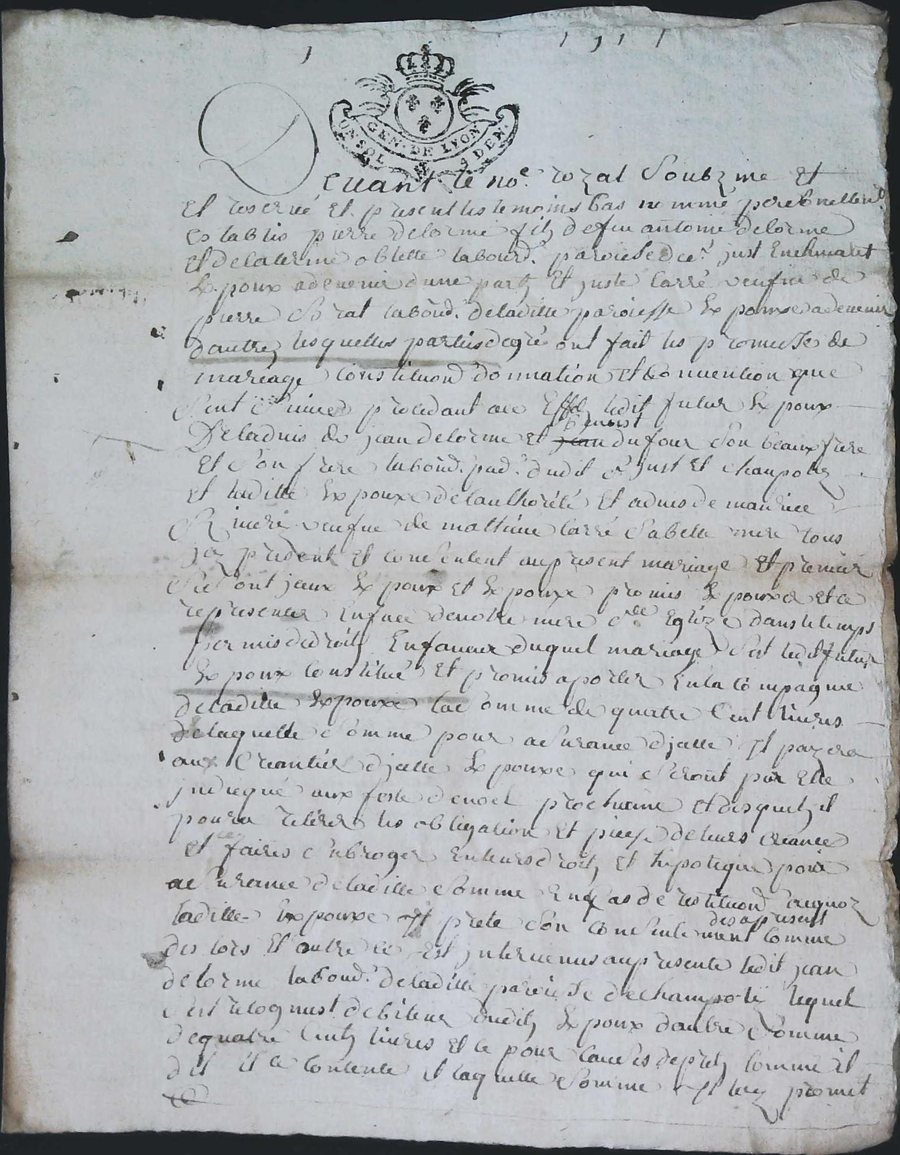 GEN. DE LYON
UN SOL 4 DEN.
Devant le no.e royal Soubzine et
et reservé et present les temoins bas nommé personnellem
establis pierre delorme fils de feu antoine delorme
et de caterine oblette labourd. paroisse de st. just Enchevalet
Expoux advenir d'une part Et juste Carré veufve de
pierre labourd. deladitte paroisse Expouxe advenir
d'autre, lesquelles parties de gré ont fait les promesse de
mariage Constitution donnation et convention que
S'ent procedant ledit futur Expoux
De ladvis de jean delorme et benoist dufour son beau frere
Et son frere labourd. dudit St just Et champoly
et laditte Expouxe de lauthorité et advis de maurice
veufve de mathieu Carré sa belle mere tous
icy present et consentent au present mariage Et premier
Seront iceux Expoux et Expouxe promis Expouser et ce
representer Enface de notre mere Ste Eglize dans le temps
permis de droit Enfaveur duquel mariage s'est ledit futur
Expoux Constitué Et promis aporter En la compagnie
deladitte Expouxe la somme de quatre Cent livres
de laquelle somme pour asurance d'icelle il payera
aux Creantier d'icelle Expouxe qui seront par elle
indiqué aux feste de noel prochaine et desquels il
poura retirer les obligation et piece de leurs creance
et ce faire subroger En leurs droits et hipoteque pour
asurance de laditte somme En cas de restitution
laditte Expouxe prete son consentement des a present comme
des lors Et outre ce Est intervenus au presente ledit jean
delorme labourd. de laditte paroisse de champoly lequel
s'est recognust debiteur dudit Expoux d'autre somme
de quatre Cents livres et ce pour cause de prets comme il
dit et ce contente laquelle somme promet